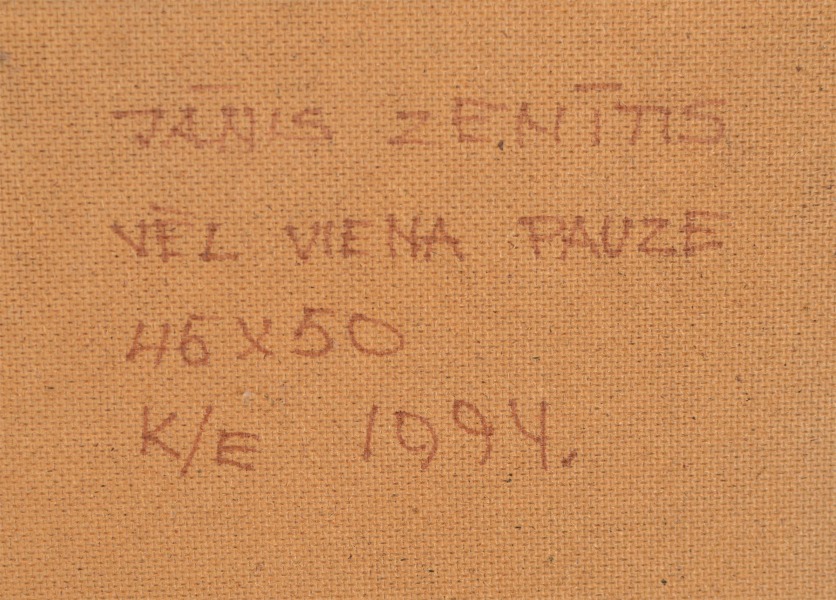 JĀNIS ZEMĪTIS
VĒL VIENA PAUZE
46 X 50
K/E 1994.